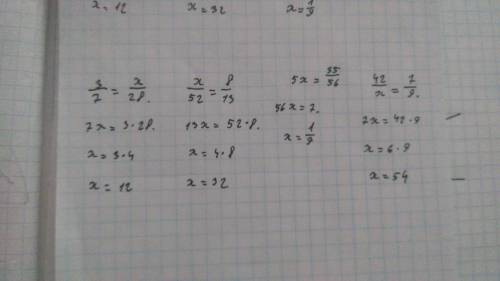 x=12 x=32 x=1/9
3/7=x/28. x/52=8/13 5x=35/56 42/x=7/9.
7x=3·28. 13x=52·8. 56x=7. 7x=42·9
x=3·4 x=4·8 x=1/9 x=6·9
x=12 x=32 x=54